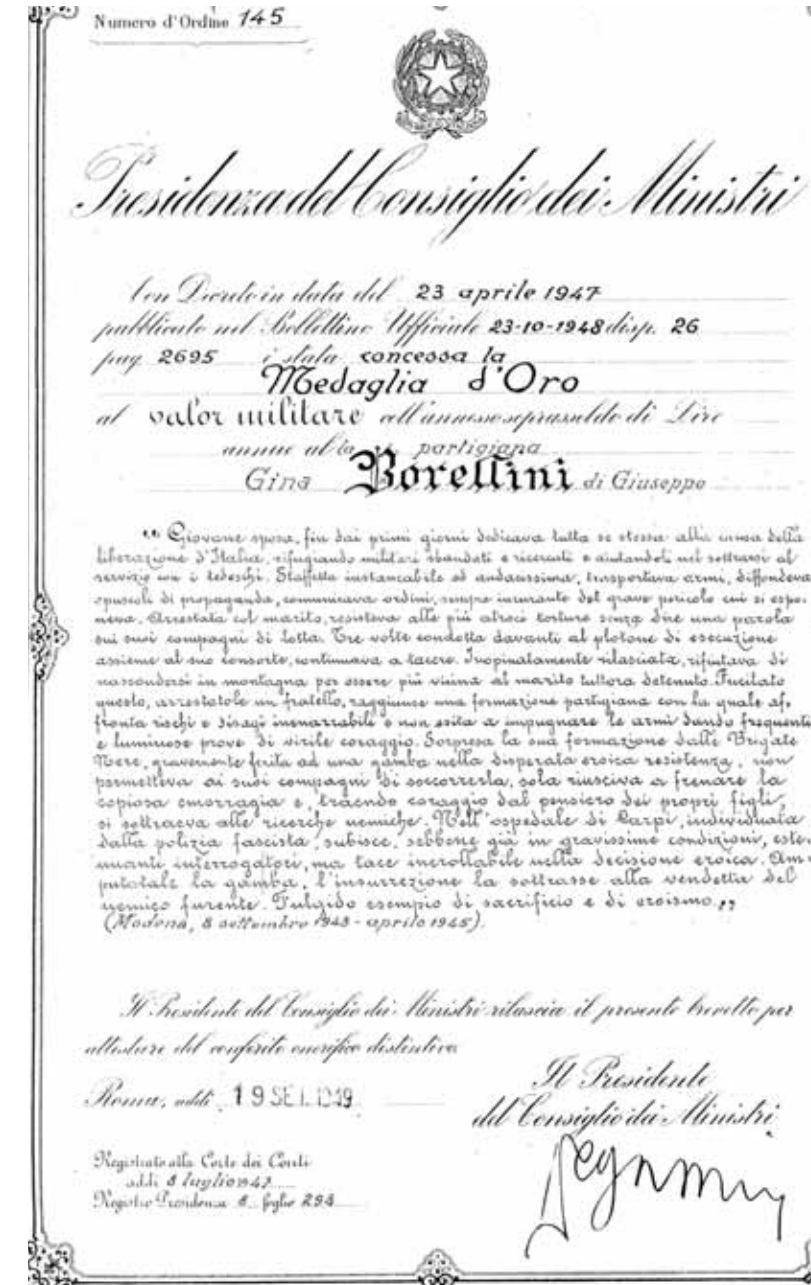 Numero d'Ordine 145
Presidenza del Consiglio dei Ministri
Con Decreto in data del 23 aprile 1947
pubblicato nel Bollettino Ufficiale 23-10-1948 disp. 26
pag. 2695 è stata concessa la
Medaglia d'Oro
al valor militare coll'annesso soprassoldo di Lire
annue alla partigiana
Gina Borellini di Giuseppe
"Giovane sposa, fin dai primi giorni dedicava tutta se stessa alla causa della
liberazione d'Italia, rifugiando militari sbandati e ricercati e aiutandoli nel sottrarsi al
servizio con i tedeschi. Staffetta instancabile ed audacissima, trasportava armi, diffondeva
opuscoli di propaganda, comunicava ordini, sempre incurante del grave pericolo cui si espo-
neva. Arrestata col marito, resisteva alle più atroci torture senza dire una parola
sui suoi compagni di lotta. Tre volte condotta davanti al plotone di esecuzione
assieme al suo consorte, continuava a tacere. Inopinatamente rilasciata, rifiutava di
nascondersi in montagna per essere più vicina al marito tuttora detenuto. Fucilato
questo, arrestatole un fratello, raggiunse una formazione partigiana con la quale af-
fronta rischi e disagi inenarrabili e non esita a impugnare le armi dando frequenti
e luminose prove di virile coraggio. Sorpresa la sua formazione dalle Brigate
Nere, gravemente ferita ad una gamba nella disperata eroica resistenza, non
permetteva ai suoi compagni di soccorrerla, sola riusciva a frenare la
copiosa emorragia e, traendo coraggio dal pensiero dei propri figli,
si sottraeva alle ricerche nemiche. Nell'ospedale di Carpi, individuata
dalla polizia fascista, subisce, sebbene già in gravissime condizioni, este-
nuanti interrogatori, ma tace incrollabile nella decisione eroica. Am-
putatale la gamba, l'insurrezione la sottrasse alla vendetta del
nemico furente. Fulgido esempio di sacrificio e di eroismo„
(Modena, 8 settembre 1943 - aprile 1945).
Il Presidente del Consiglio dei Ministri rilascia il presente brevetto per
attestare del conferito onorifico distintivo
Roma, addì 19 SET. 1949
Il Presidente
del Consiglio dei Ministri
Registrato alla Corte dei Conti
addì 8 luglio 1947
Registro Presidenza 8 foglio 298